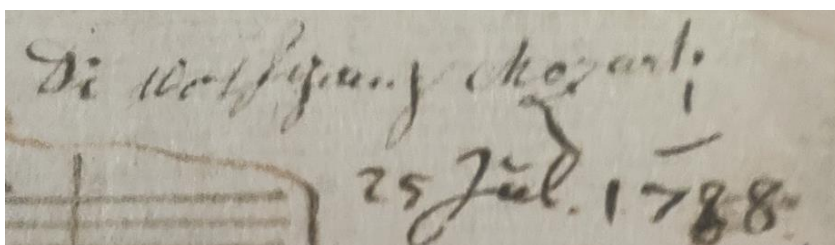 Di Wolfgang Mozart.
25 Jul. 1788